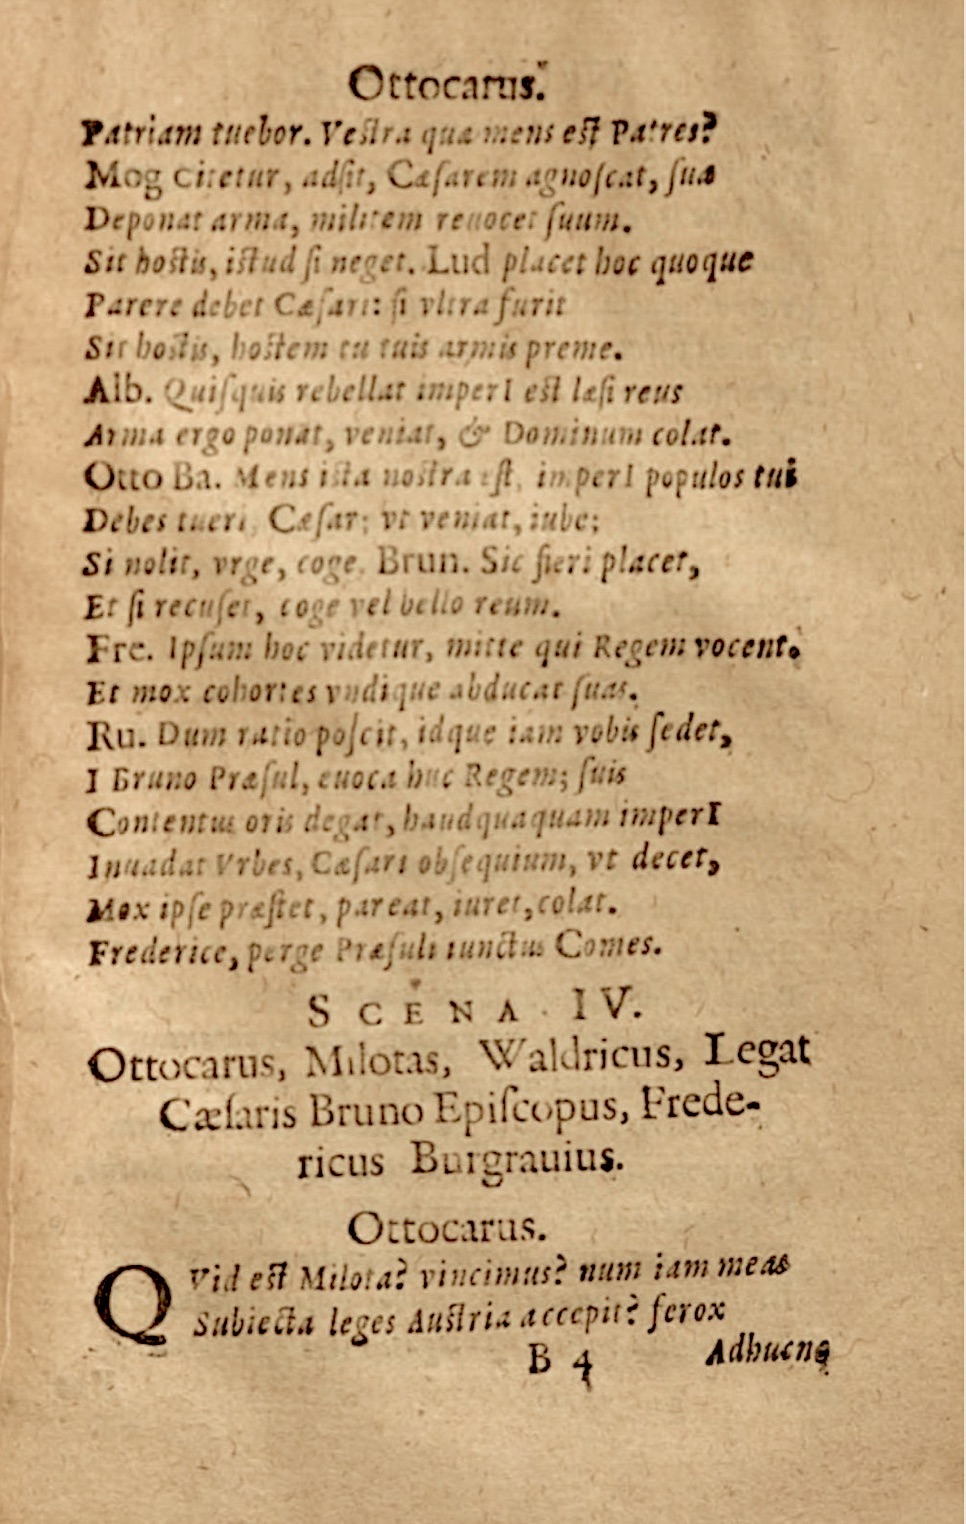 Ottocarus.
Patriam tuebor. Vestra qua mens est Patres?
Mog citetur, adsit, Cæsarem agnoscat, sua
Deponat arma, militem reuocet suum.
Sit hostis, istud si neget. Lud placet hoc quoque
Parere debet Cæsari: si vltra furit
Sit hostis, hostem tu tuis armis preme.
Alb. Quisquis rebellat imperI est læsi reus
Arma ergo ponat, veniat, & Dominum colat.
Otto Ba. Mens ista nostra est, imperI populos tui
Debes tueri Cæsar; vt veniat, iube;
Si nolit, vrge, coge. Brun. Sic fieri placet,
Et si recuset, coge vel bello reum.
Fre. Ipsum hoc videtur, mitte qui Regem vocent.
Et mox cohortes vndique abducat suas.
Ru. Dum ratio poscit, idque iam vobis sedet,
I Bruno Præsul, euoca huc Regem; suis
Contentus oris degat, haudquaquam imperI
Inuadat Vrbes, Cæsari obsequium, vt decet,
Mox ipse præstet, pareat, iuret, colat.
Frederice, perge Præsuli iunctus Comes.
SCENA IV.
Ottocarus, Milotas, Waldricus, Legat
Cæsaris Bruno Episcopus, Frede-
ricus Burgrauius.
Ottocarus.
QVid est Milota? vincimus? num iam meas
Subiecta leges Austria accepit? ferox
B 4 Adhucne